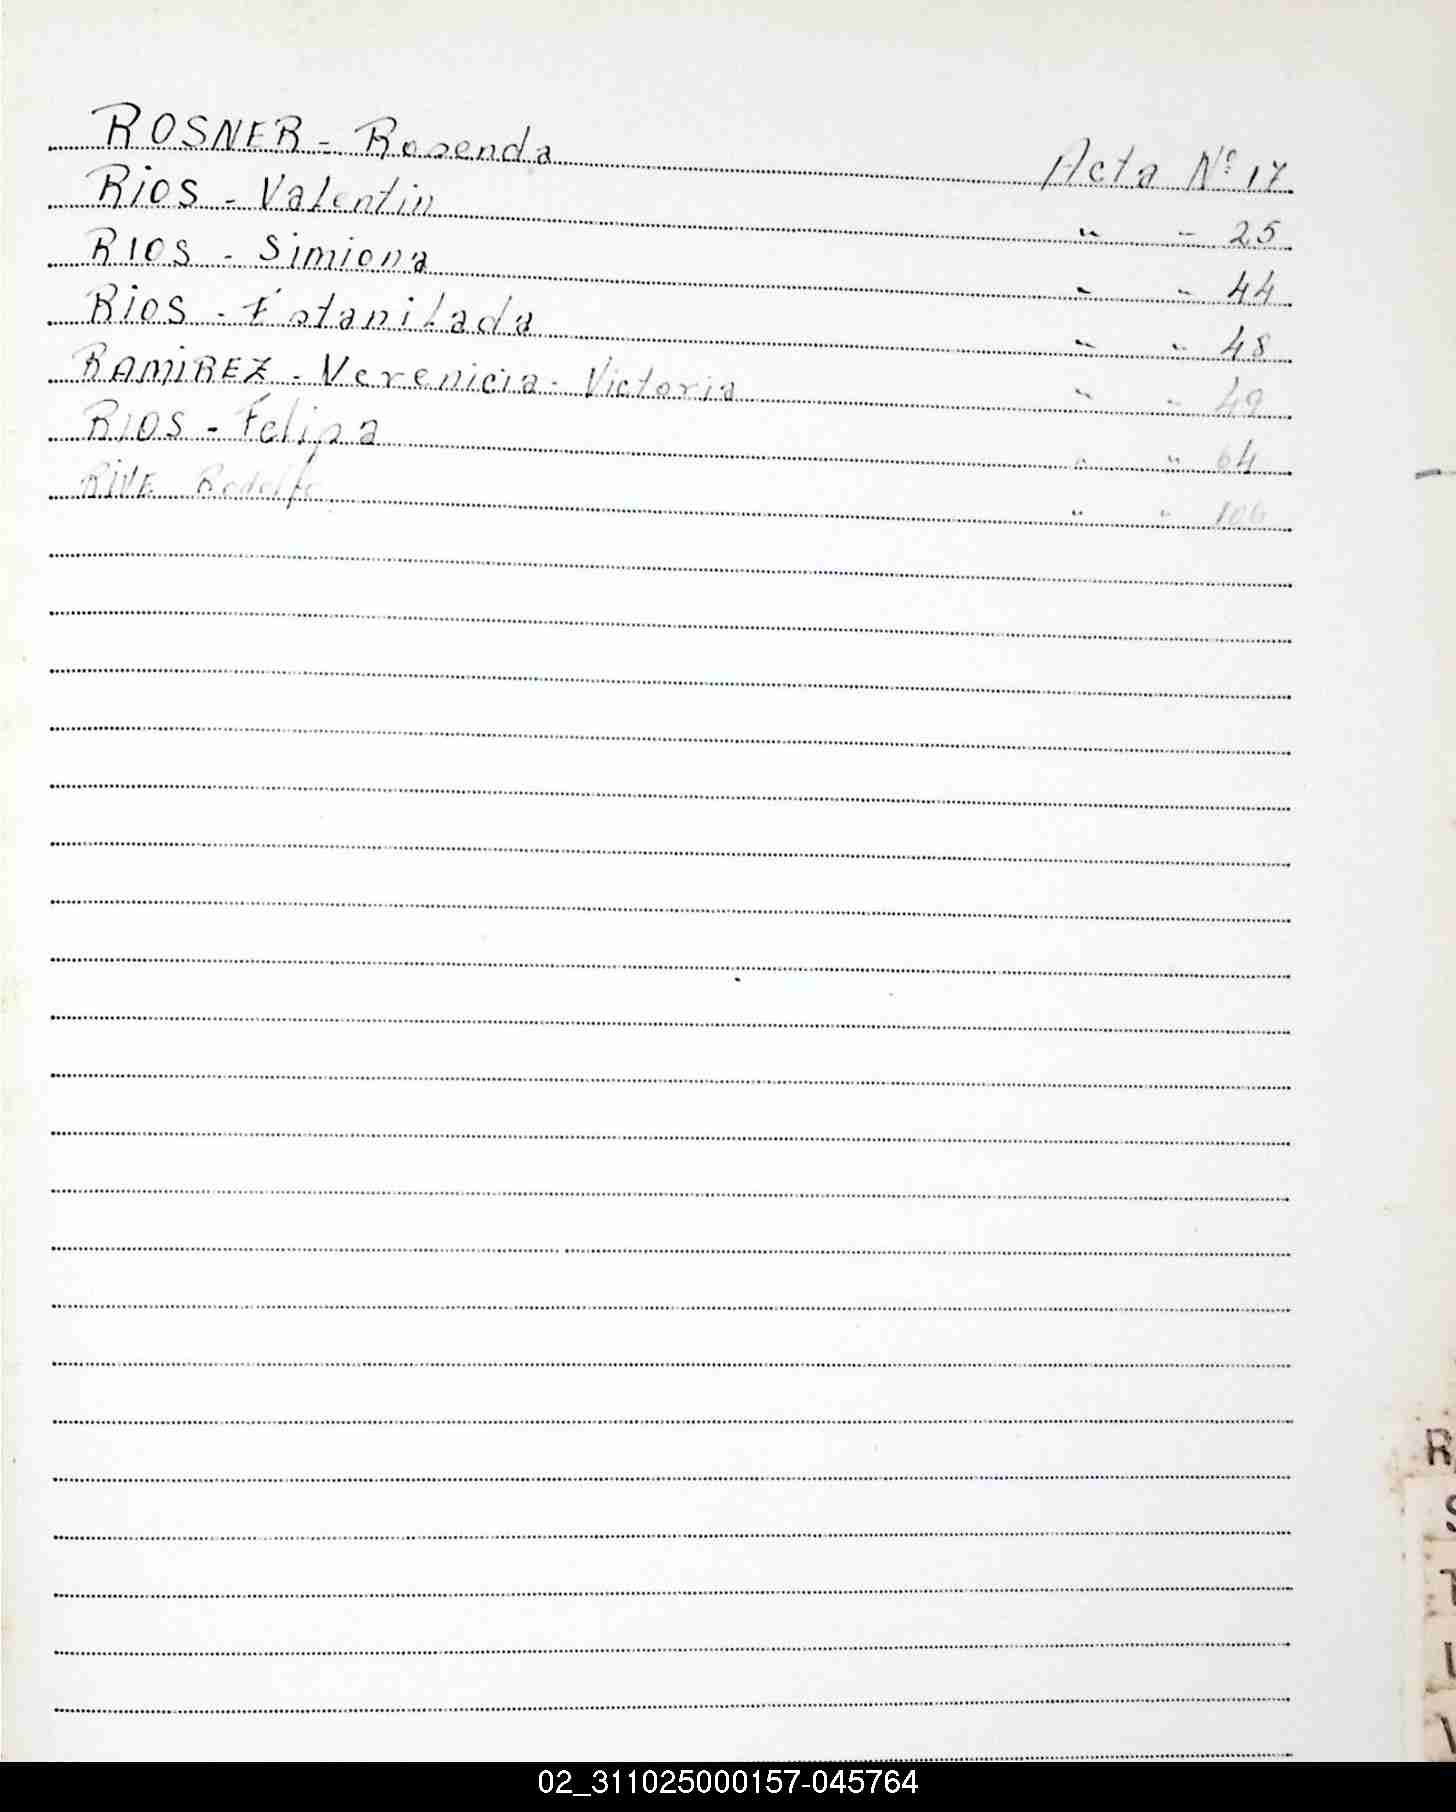 ROSNER - Rosenda Acta Nº 17
RiOS - Valentin " " 25
RIOS - Simiona " " 44
RiOS - Estanilada " " 48
RAMiREZ - Verenicia - Victoria " " 49
RIOS - Felipa " " 64
RiVE Rodolfo " " 106
R
S
T
V
02_311025000157-045764